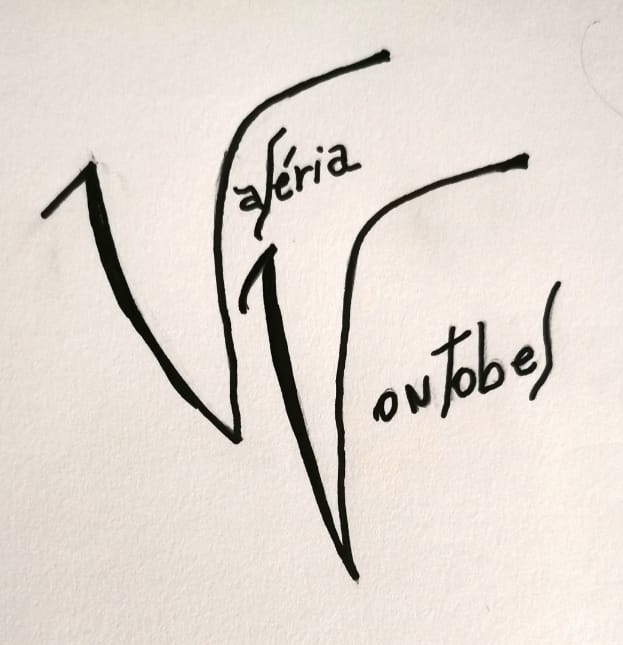 Valéria
Vontobel